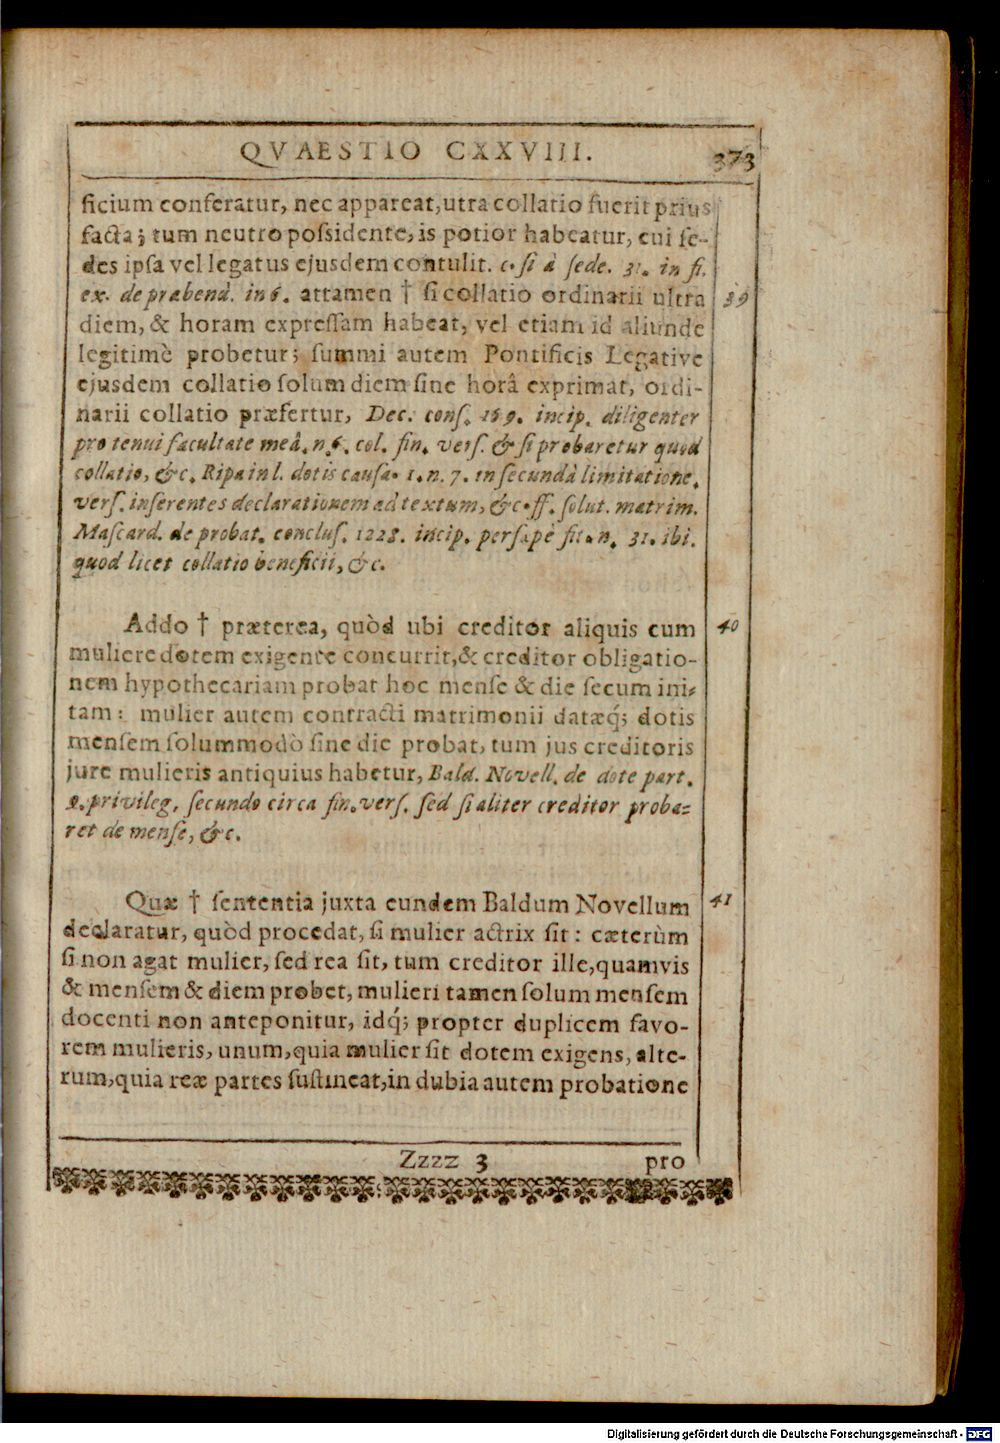 QVAESTIO CXXVIII. 373
ficium conferatur, nec appareat, utra collatio fuerit prius
facta; tum neutro possidente, is potior habeatur, cui se-
des ipsa vel legatus ejusdem contulit. c. si à sede. 31. in fi.
ex. de præbend. in 6. attamen † si collatio ordinarii ultra 39
diem, & horam expressam habeat, vel etiam id aliunde
legitimè probetur; summi autem Pontificis Legative
ejusdem collatio solum diem sine horâ exprimat, ordi-
narii collatio præfertur, Dec. cons. 169. incip. diligenter
pro tenui facultate meâ. n. 6. col. fin. vers. & si probaretur quod
collatio, &c. Ripa in l. dotis causa. 1. n. 7. in secundâ limitatione.
vers. inserentes declarationem ad textum, &c. ff. solut. matrim.
Mascard. de probat. conclus. 1228. incip. persæpè fit. n. 31. ibi.
quod licet collatio beneficii, &c.
Addo † præterea, quòd ubi creditor aliquis cum 40
muliere dotem exigente concurrit, & creditor obligatio-
nem hypothecariam probat hoc mense & die secum ini-
tam: mulier autem contracti matrimonii datæq́; dotis
mensem solummodò sine die probat, tum jus creditoris
jure mulieris antiquius habetur, Bald. Novell. de dote part.
9. privileg. secundo circa fin. vers. sed si aliter creditor proba-
ret de mense, &c.
Quæ † sententia juxta eundem Baldum Novellum 41
declaratur, quòd procedat, si mulier actrix sit: cæterùm
si non agat mulier, sed rea sit, tum creditor ille, quamvis
& mensem & diem probet, mulieri tamen solum mensem
docenti non anteponitur, idq́; propter duplicem favo-
rem mulieris, unum, quia mulier sit dotem exigens, alte-
rum, quia reæ partes sustineat, in dubia autem probatione
Zzzz 3 pro
Digitalisierung gefördert durch die Deutsche Forschungsgemeinschaft - DFG